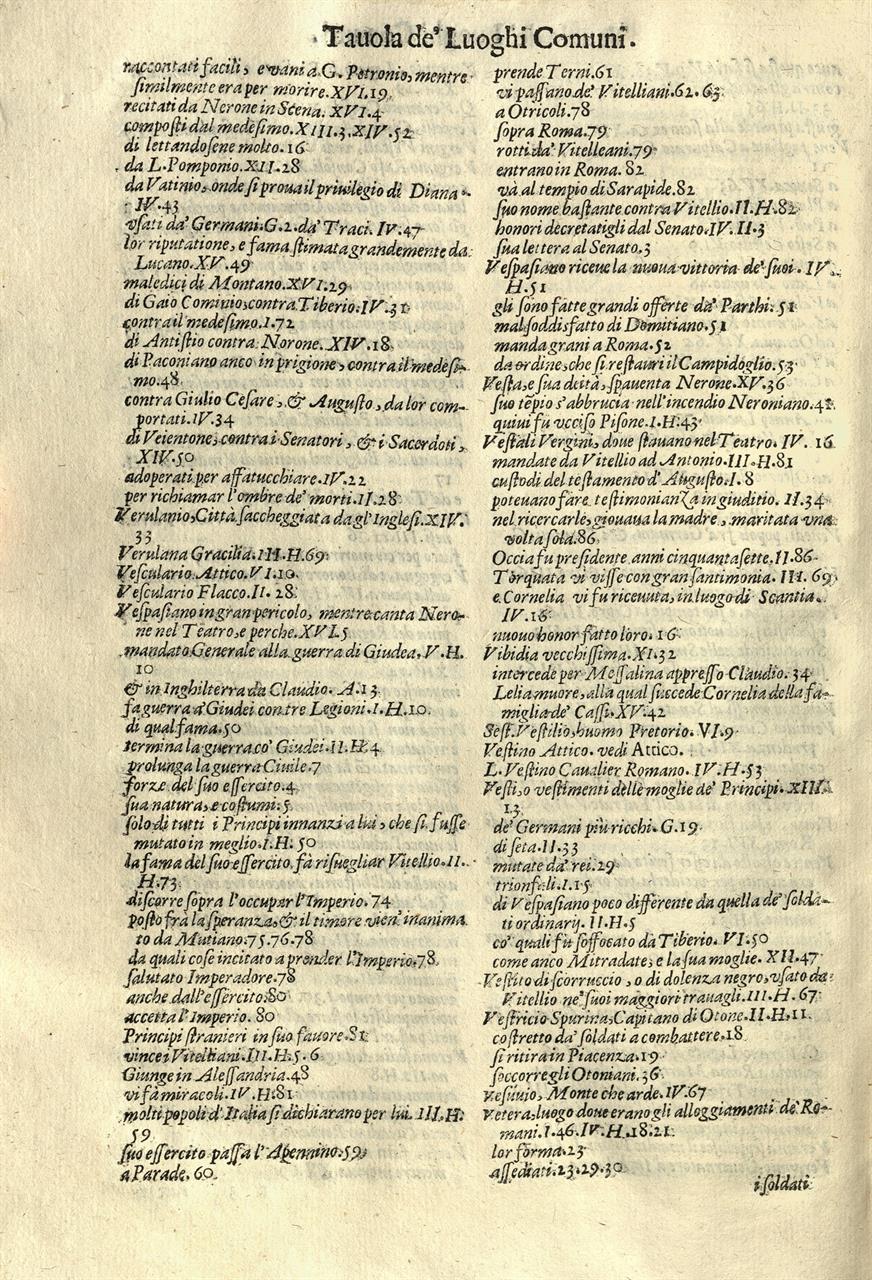 Tauola de' Luoghi Comuni.
raccontati facili, e vani a G. Petronio, mentre
similmente era per morire. XVI. 19
recitati da Nerone in Scena. XVI. 4
composti dal medesimo. XIII. 3. XIV. 52
di lettandosene molto. 16
da L. Pomponio. XII. 28
da Vatinio, onde si proua il priuilegio di Diana.
IV. 43
vsati da' Germani. G. 2. da' Traci. IV. 47
lor riputatione, e fama stimata grandemente da
Lucano. XV. 49
maledici di Montano. XVI. 29
di Gaio Cominio, contra Tiberio. IV. 31
contra il medesimo. I. 72
di Antistio contra Norone. XIV. 18
di Paconiano anco in prigione, contra il medesi-
mo. 48
contra Giulio Cesare, & Augusto, da lor com-
portati. IV. 34
di Veientone, contra i Senatori, & i Sacerdoti,
XIV. 50
adoperati per affatucchiare. IV. 22
per richiamar l'ombre de' morti. II. 28
Verulanio, Città saccheggiata dagl'Inglesi. XIV.
33
Verulana Gracilia. III. H. 69
Vesculario Attico. VI. 10
Vesculario Flacco. II. 28
Vespasiano in gran pericolo, mentre canta Nero-
ne nel Teatro, e perche. XVI. 5
mandato Generale alla guerra di Giudea. V. H.
10
& in Inghilterra da Claudio. A. 13
fa guerra a' Giudei con tre Legioni. I. H. 10
di qual fama. 50
termina la guerra co' Giudei. II. H. 4
prolunga la guerra Ciuile. 7
forze del suo essercito. 4
sua natura, e costumi. 5
solo di tutti i Principi innanzi a lui, che si fusse
mutato in meglio. I. H. 50
la fama del suo essercito, fà risuegliar Vitellio. II.
H. 73
discorre sopra l'occupar l'Imperio. 74
posto frà la speranza, & il timore vien' inanima
to da Mutiano. 75. 76. 78
da quali cose incitato a prender l'Imperio. 78
salutato Imperadore. 78
anche dall'essercito. 80
accetta l'Imperio. 80
Principi stranieri in suo fauore. 81
vince i Vitelliani. III. H. 5. 6
Giunge in Alessandria. 48
vi fà miracoli. IV. H. 81
molti popoli d'Italia si dichiarano per lui. III. H.
59
suo essercito passa l'Apennino. 59
a Parade. 60
prende Terni. 61
vi passano de' Vitelliani. 62. 63
a Otricoli. 78
sopra Roma. 79
rotti da' Vitelleani. 79
entrano in Roma. 82
và al tempio di Sarapide. 82
suo nome bastante contra Vitellio. II. H. 82
honori decretatigli dal Senato. IV. II. 3
sua lettera al Senato. 3
Vespasiano riceue la nuoua vittoria de' suoi. IV.
H. 51
gli sono fatte grandi offerte da' Parthi. 51
mal soddisfatto di Domitiano. 51
manda grani a Roma. 52
da ordine, che si restauri il Campidoglio. 53
Vesta, e sua deità, spauenta Nerone. XV. 36
suo tẽpio s'abbrucia nell'incendio Neroniano. 41
quiui fu vcciso Pisone. I. H. 43
Vestali Vergini, doue stauano nel Teatro. IV. 16
mandate da Vitellio ad Antonio. III. H. 81
custodi del testamento d'Augusto. I. 8
poteuano fare testimonianza in giuditio. II. 34
nel ricercarle, giouaua la madre, maritata vna
volta sola. 86
Occia fu presidente anni cinquantasette. II. 86
Torquata vi visse con gran santimonia. III. 69
e Cornelia vi fu riceuuta, in luogo di Scantia.
IV. 16
nuouo honor fatto loro. 16
Vibidia vecchissima. XI. 32
intercede per Messalina appresso Claudio. 34
Lelia muore, alla qual succede Cornelia della fa-
miglia de' Cassi. XV. 42
Sest. Vestilio, huomo Pretorio. VI. 9
Vestino Attico. vedi Attico.
L. Vestino Caualier Romano. IV. H. 53
Vesti, o vestimenti delle moglie de' Principi. XIII.
13
de' Germani più ricchi. G. 19
di seta. II. 33
mutate da' rei. 29
trionfali. I. 15
di Vespasiano poco differente da quella de' solda-
ti ordinarij. II. H. 5
co' quali fù soffocato da Tiberio. VI. 50
come anco Mitradate, e la sua moglie. XII. 47
Vestito di scorruccio, o di dolenza negro, vsato da
Vitellio ne' suoi maggiori trauagli. III. H. 67
Vestricio Spurina, Capitano di Otone. II. H. 11
costretto da' soldati a combattere. 18
si ritira in Piacenza. 19
soccorre gli Otoniani. 36
Vesuuio, Monte che arde. IV. 67
Vetera, luogo doue erano gli alloggiamenti de' Ro-
mani. I. 46. IV. H. 18. 21
lor forma. 23
assediati. 23. 29. 30
i soldati